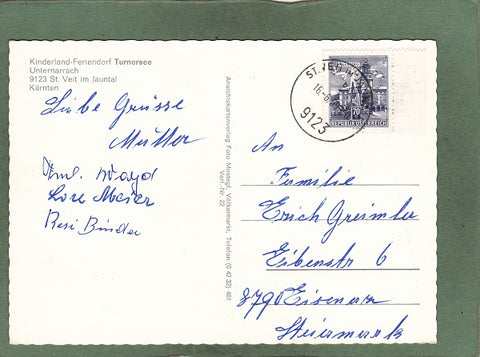 Kinderland-Feriendorf Turnersee
Unternarrach
9123 St. Veit im Jauntal
Kärnten
Liebe Grüsse
Müller
Lore
Resi Binder
Ansichtskartenverlag Foto Völkermarkt, Telefon (0 42 32) 481
Verl.-Nr. 22
ST. VEIT
16.
9123
70
REPUBLIK ÖSTERREICH
An
Familie
Erich Greimler
Eibenstr 6
8790 Eisenerz
Steiermark